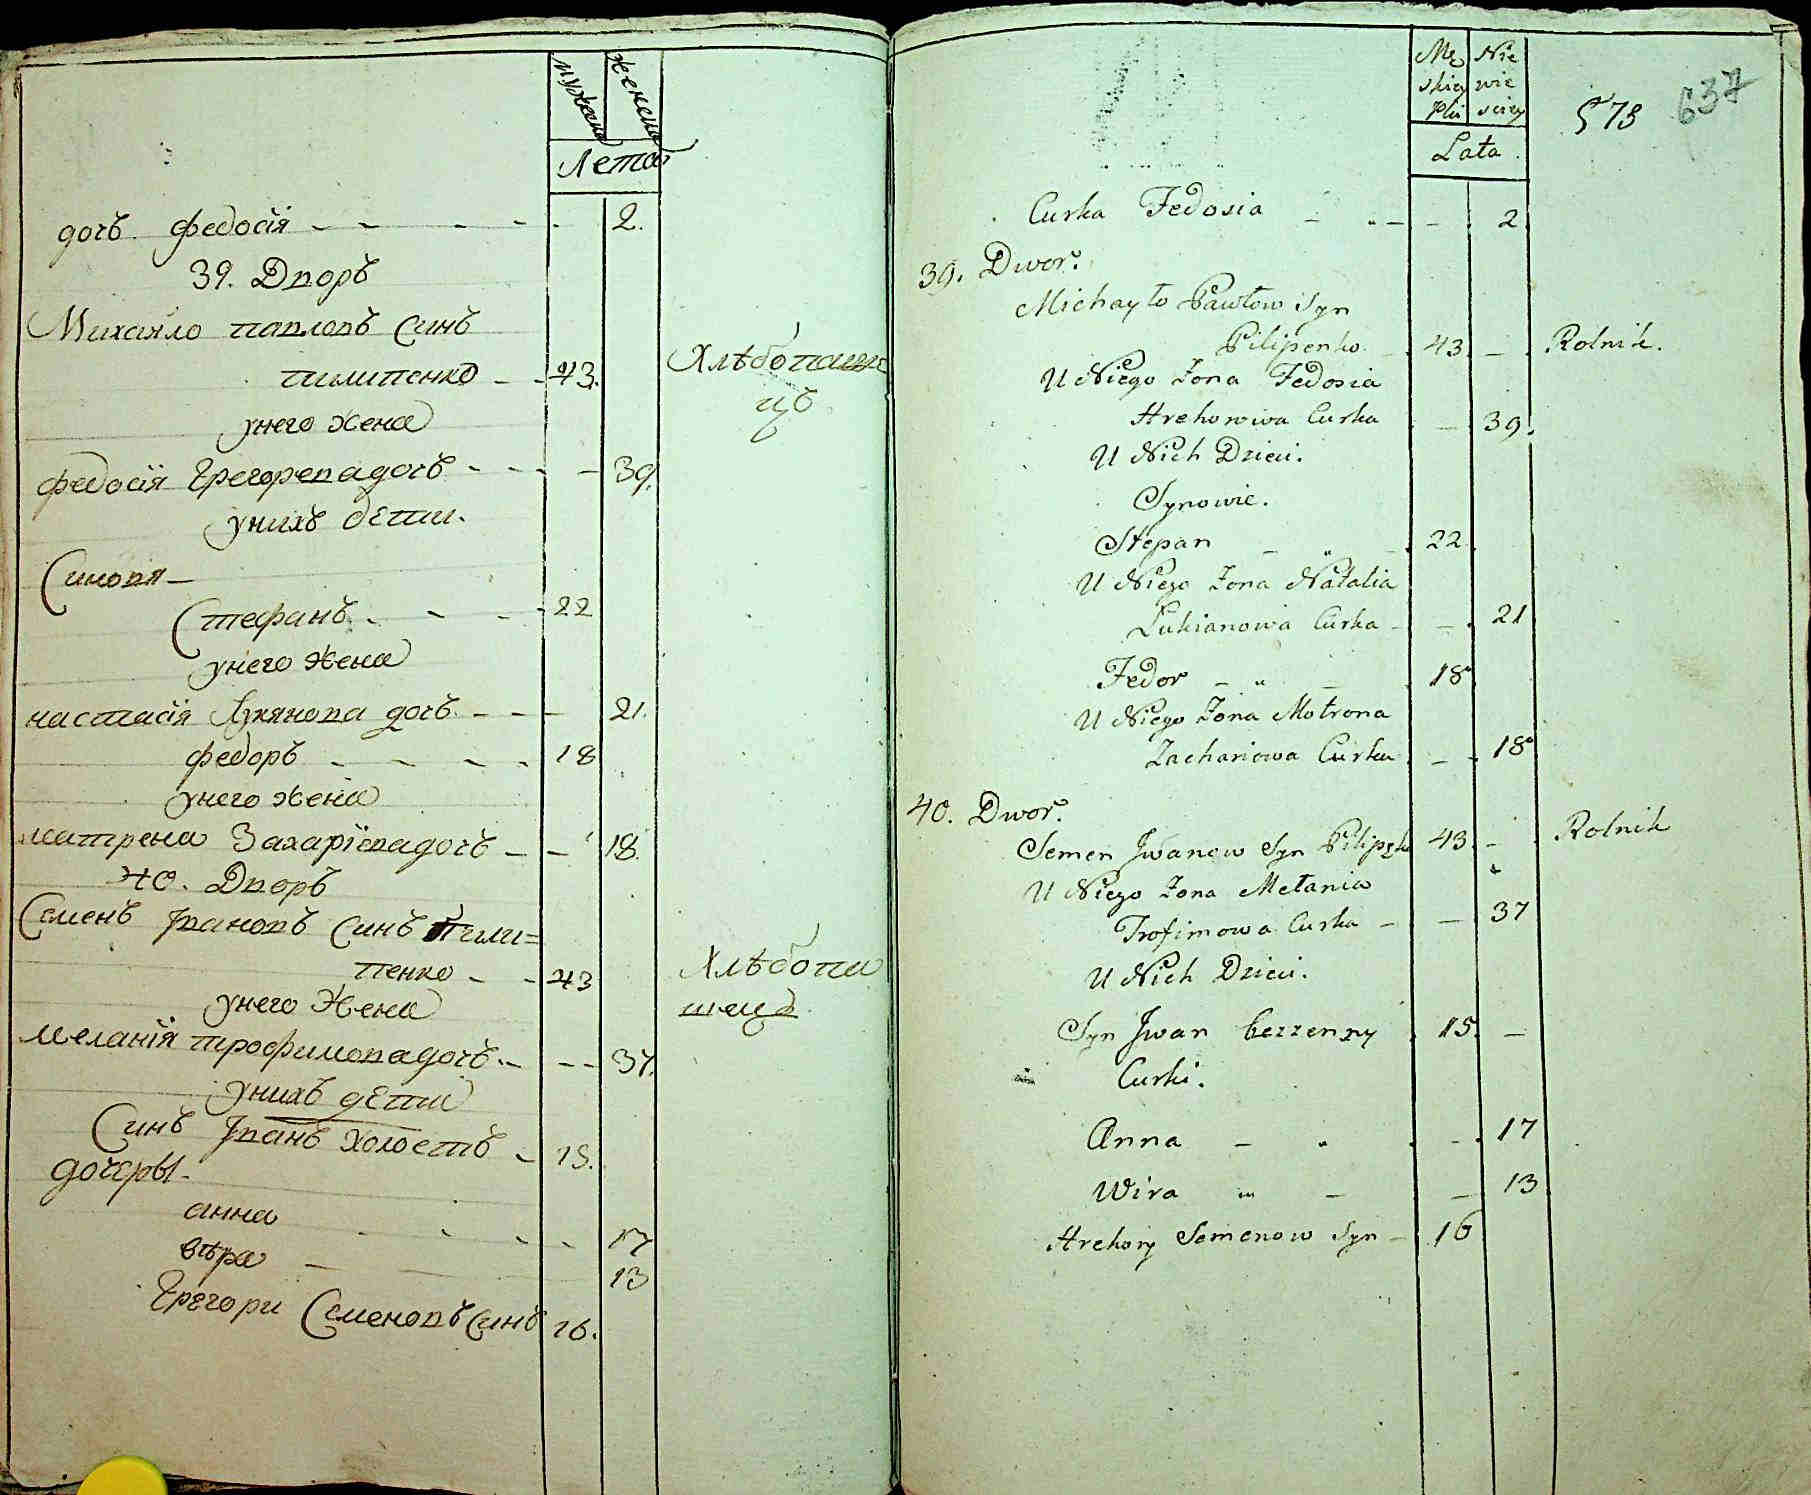 мужеска женска
Летаб
дочъ федосія 2.
39. Дворъ
Михайло павловъ синъ
пилипенко 43. Хлѣбопаше
унего жена цъ
федосія Грегорева дочъ 39.
унихъ дѣти.
Синовя
Стефанъ 22
унего жена
настасія Лукянова дочъ 21.
федоръ 18
унего жена
матрена Захаріева дочъ 18.
40. Дворъ
Семенъ Івановъ синъ пили=
пенко 43 Хлѣбопа
унего жена шецъ
меланія трофимова дочъ 37.
унихъ дѣти
Синъ Іванъ холостъ 15.
дочеры
анна 17
вѣра 13
Грегори Семеновъ синъ 16.
Mę Nie
skiey wie
Płci sciey
573 637
Lata
Curka Fedosia 2
39. Dwor.
Michayło Pawłow Syn
Pilipenko 43 Rolnik.
U Niego Zona Fedosia
Hrehorowa Curka 39.
U Nich Dzieci.
Synowie.
Stepan 22
U Niego Zona Natalia
Łukianowa Curka 21
Fedor 18
U Niego Zona Motrona
Zachariowa Curka 18
40. Dwor.
Semen Jwanow Syn 43 Rolnik
U Niego Zona Mełania
Trofimowa Curka 37
U Nich Dzieci.
Syn Jwan bezzenny 15.
Curki.
Anna 17
Wira 13
Hrehory Semenow Syn 16